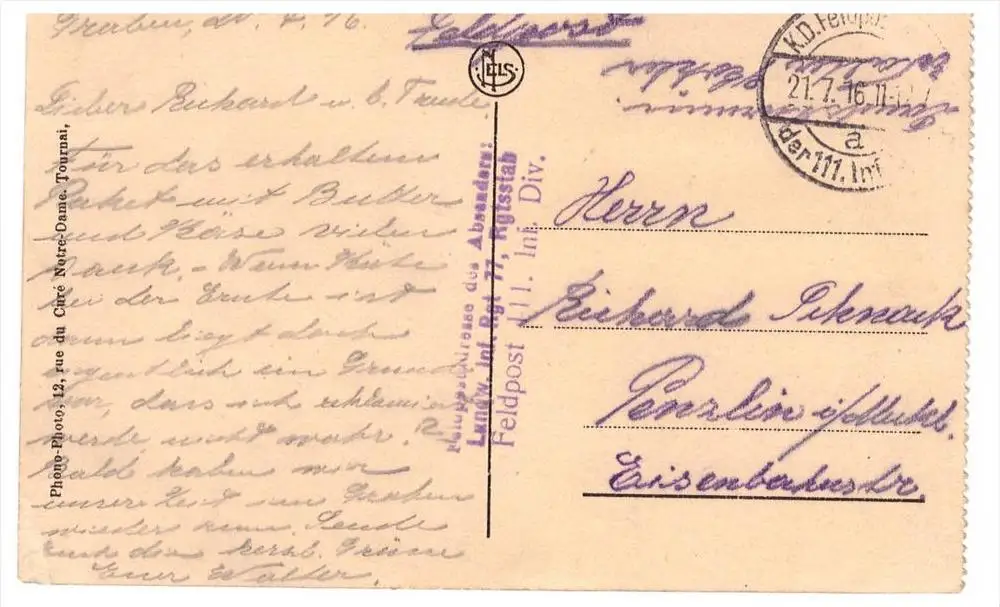 Graben, d. 7. 16
Feldpost
Lieber Richard u. b. Trude
Für das erhaltene
Paket mit Butter
und Käse vielen
Dank. – Wenn
bei der Ernte ist
dann liegt doch
eigentlich ein Grund
vor, dass ich reklamiert
werde, nicht wahr?
Bald haben wir
unsere Zeit im Graben
wieder rum. Sende
Euch die herzl. Grüsse
Euer Walter.
Phono-Photo, 12, rue du Curé Notre-Dame. Tournai,
NELS
Feldpostadresse des Absenders:
Landw. Inf. Rgt. 77, Rgtsstab
Feldpost 111. Inf. Div.
K.D. Feldpost
21.7.16 11-12
a
der 111. Inf
Herrn
Richard
Penzlin i/Meckl.
Eisenbahnstr.